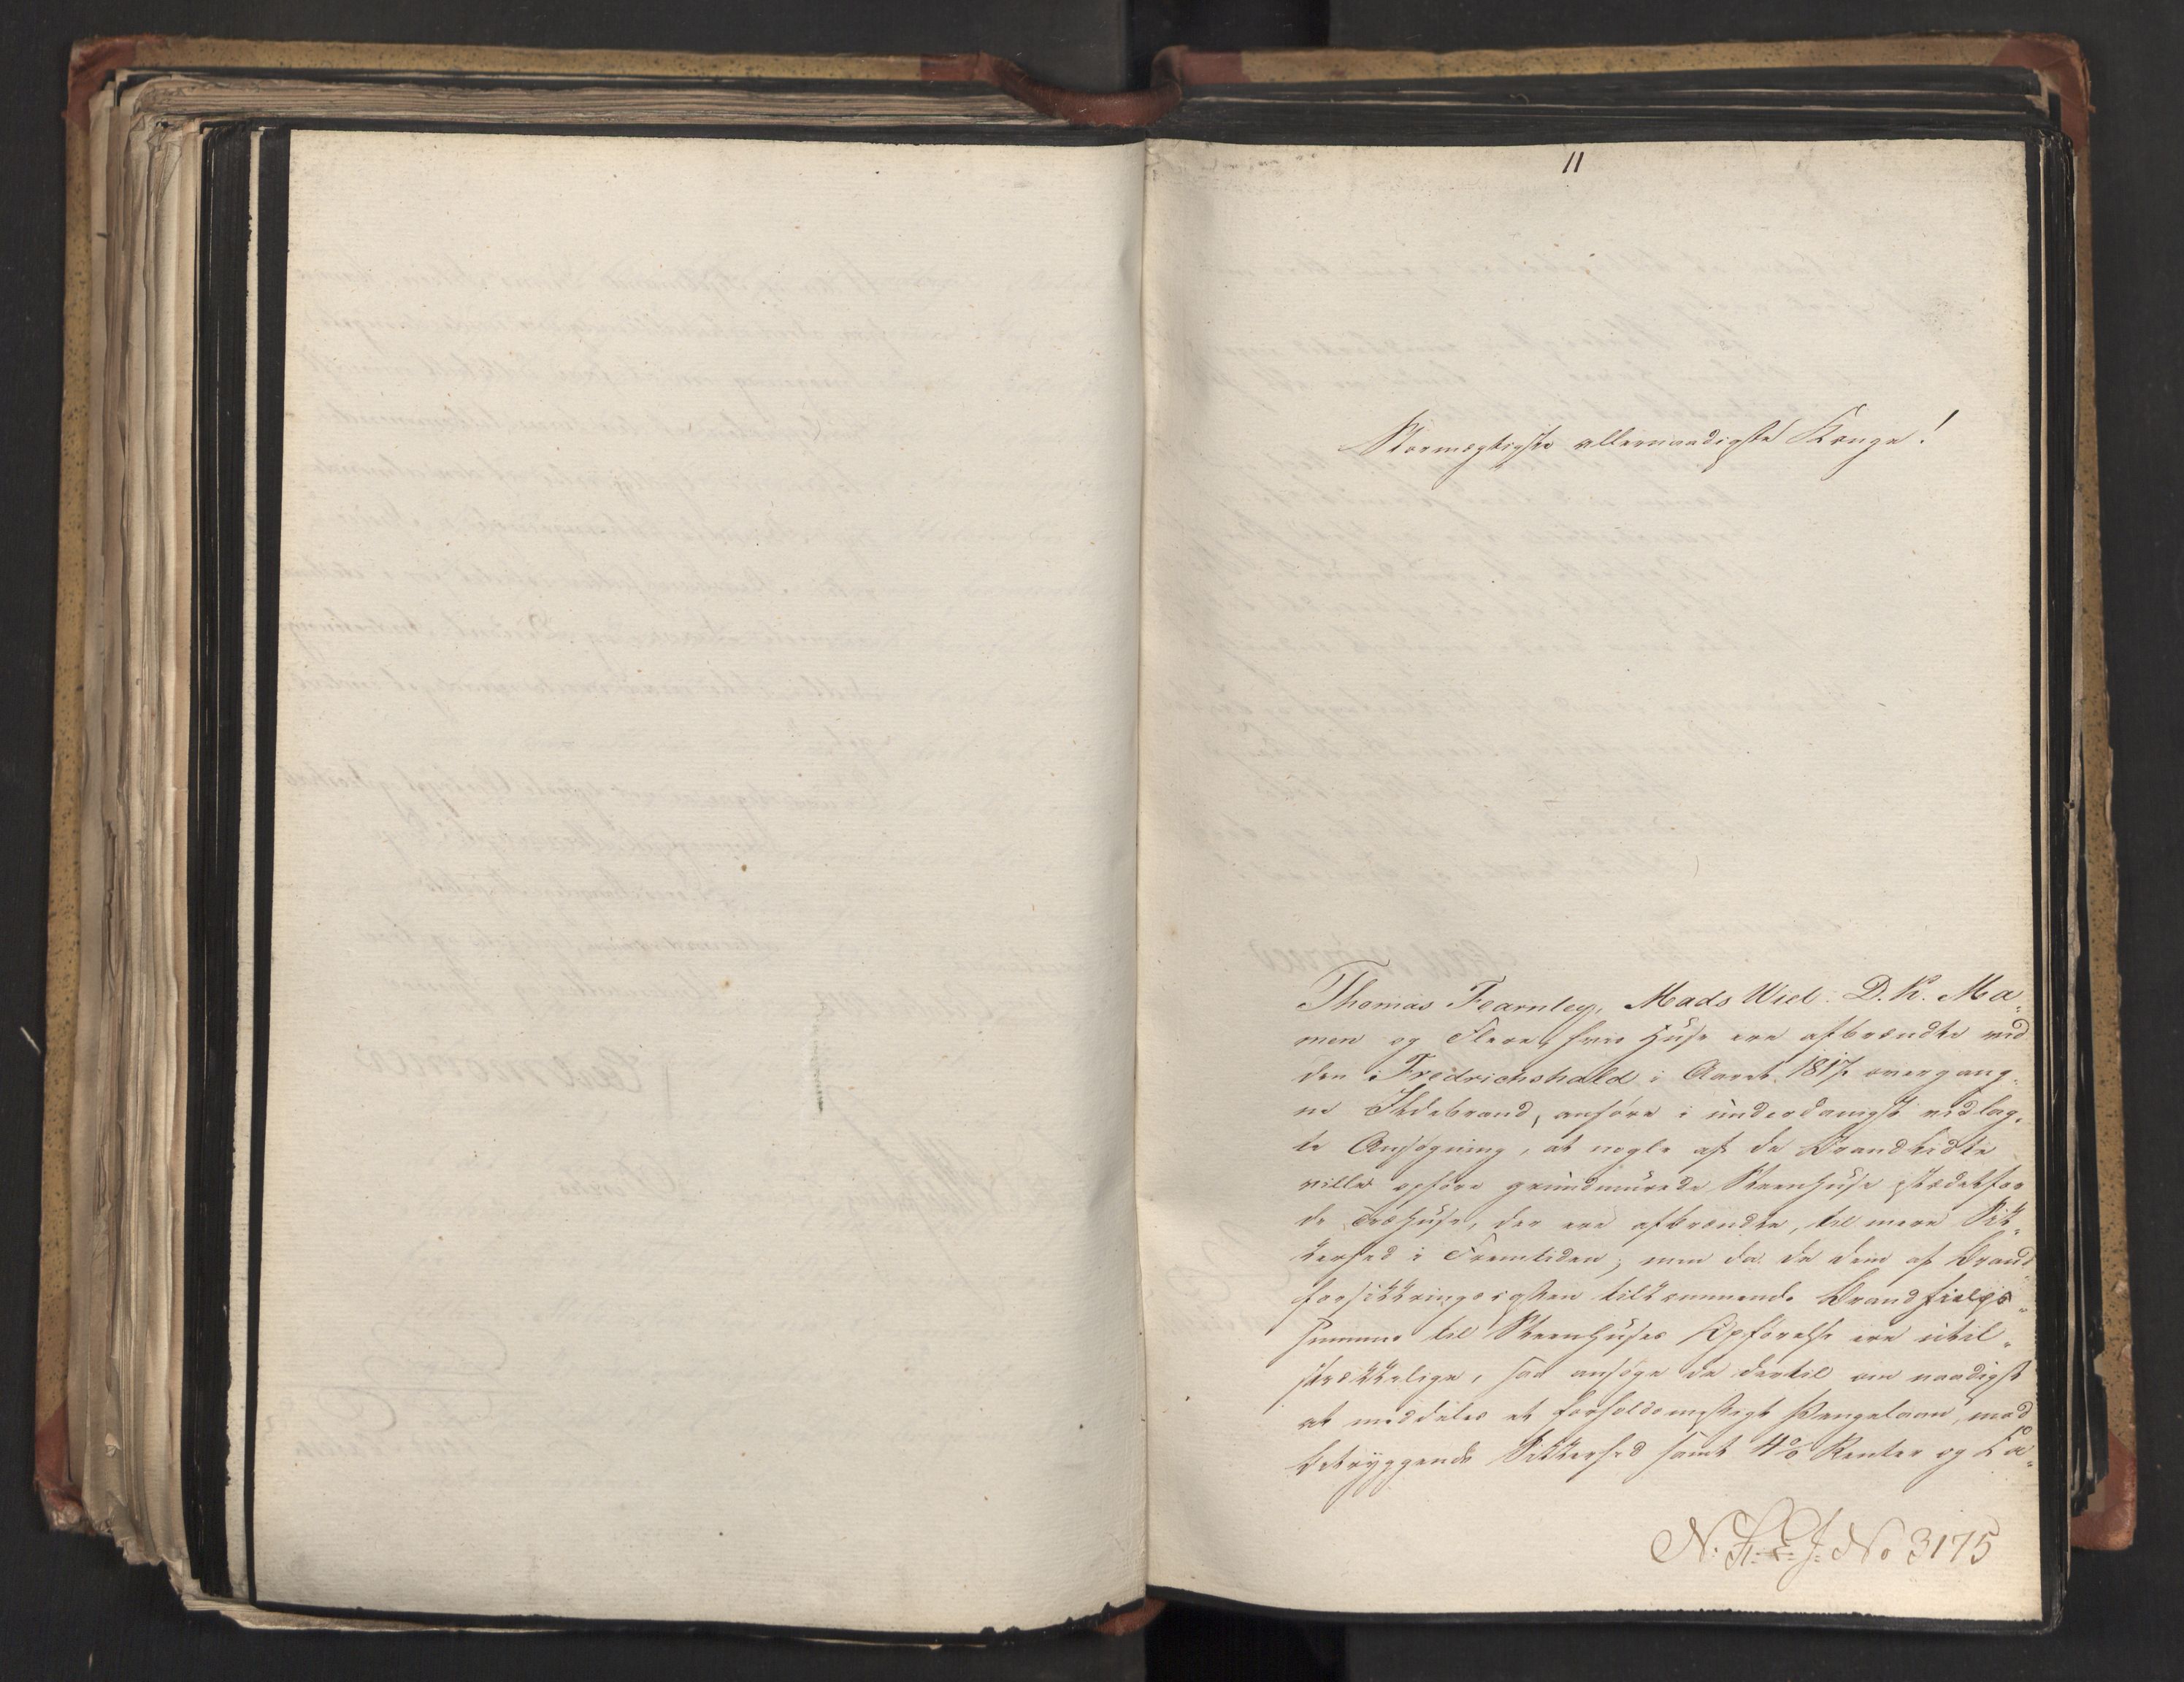 11
Stormægtigste allernaadigste Konge!
Thomas Fearnley, Mads Wiel. D. K. Ma„
men og Flere, hvis Huse ere afbrændte ved
den i Fredrichshald i Aaret 1817 overgang„
ne Ildebrand, anføre i underdanigst vedlag„
te Ansøgning, at nogle af de Brandlidte
ville opføre grundmurede Steenhuse istædetfor
de Træhuse, der ere afbrændte, til mere Sik„
kerhed i Fremtiden; men da de dem af Brand„
forsikkringscassen tilkommende Brandhielps„
summer til Steenhuses Opførelse ere util„
strækkelige, saa ansøge de dertil om naadigst
at meddeles et forholdsmæssigt Pengelaan, mod
betryggende Sikkerhed samt 4% Renter og La„
N. F. E. J. No 3175